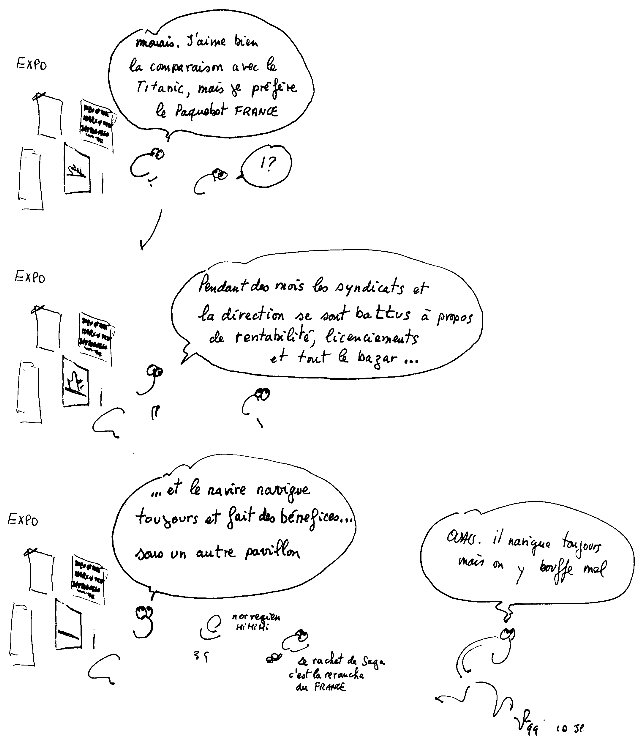 EXPO
mouais. J'aime bien
la comparaison avec le
Titanic, mais je préfère
le Paquebot FRANCE
!?
EXPO
Pendant des mois les syndicats et
la direction se sont battus à propos
de rentabilité, licenciements
et tout le bazar ...
EXPO
... et le navire navigue
toujours et fait des bénefices...
sous un autre pavillon
norvegien
HiHiHi
le rachat de Saga
c'est la revanche
du FRANCE
OUAIS. il navigue toujours
mais on y bouffe mal